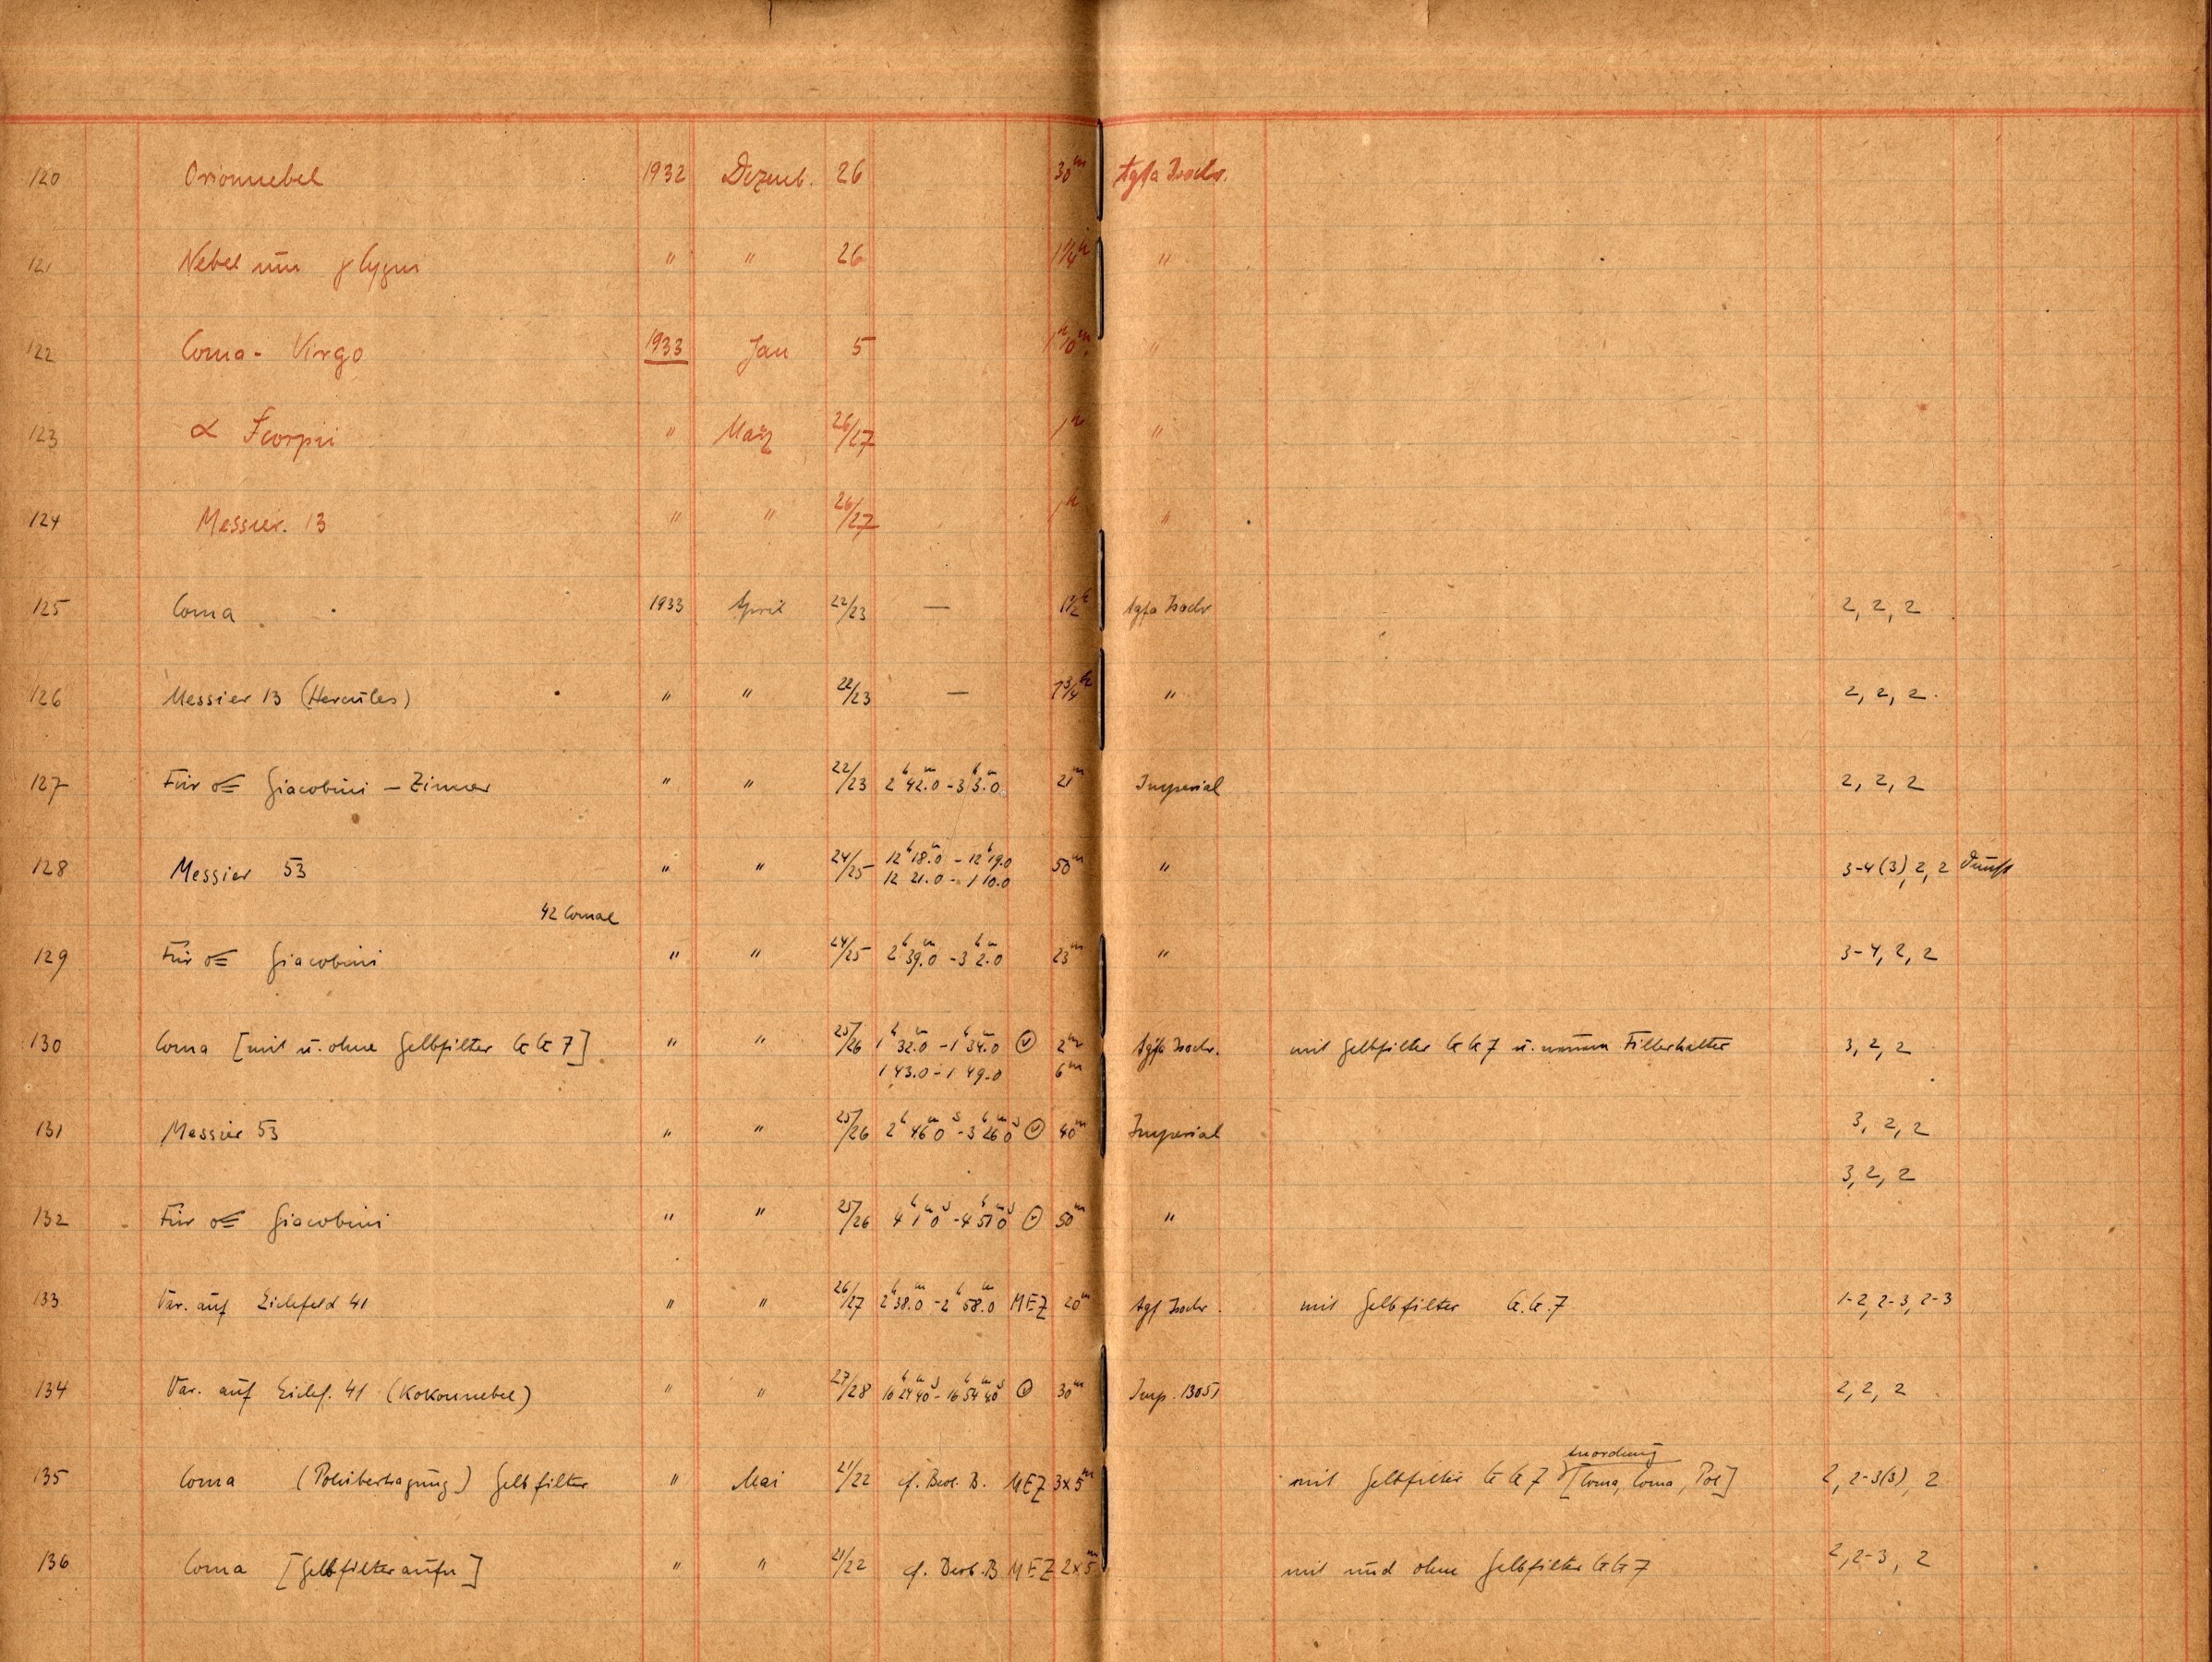 120 Orionnebel 1932 Dezemb. 26 30m Agfa Isochr.
121 Nebel um γ Cygni " " 26 1 1/4h "
122 Coma - Virgo 1933 Jan 5 "
123 α Scorpii " März 26/27 1h "
124 Messier. 13 " " 26/27 1h "
125 Coma 1933 April 22/23 — 1 1/2h Agfa Isochr 2, 2, 2
126 Messier 13 (Hercules) " " 22/23 — 1 3/4h " 2, 2, 2.
127 Für ☄ Giacobini – Zinner " " 22/23 2h 42.m0 - 3h 3.m0 21m Imperial 2, 2, 2
128 Messier 53 " " 24/25 12h 18.m0 - 12h 19.0 50m " 3-4(3), 2, 2 Dunst
12 21.0 - 1 10.0
42 Comae
129 Für ☄ Giacobini " " 24/25 2h 39.m0 - 3h 2.m0 23m " 3-4, 2, 2
130 Coma [mit u. ohne Gelbfilter GG7] " " 25/26 1h 32.m0 - 1h 34.m0 2m Agfa Isochr. mit Gelbfilter GG7 u. neuem Filterhalter 3, 2, 2
1 43.0 - 1 49.0 6m
131 Messier 53 " " 25/26 2h 46m 0s - 3h 26m 0s 40m Imperial 3, 2, 2
3, 2, 2
132 Für ☄ Giacobini " " 25/26 4h 1m 0s - 4h 51m 0s 50m "
133 Var. auf Eichfeld 41 " " 26/27 2h 38.m0 - 2h 58.m0 MEZ 20m Agf Isochr. mit Gelbfilter G.G.7 1-2, 2-3, 2-3
134 Var. auf Eichf. 41 (Kokonnebel) " " 27/28 16h 24m 40s - 16h 54m 40s 30m Imp. 13051 2, 2, 2
Anordnung
135 Coma (Polübertragung) Gelbfilter " Mai 21/22 cf. Beob. B. MEZ 3x5m mit Gelbfilter GG7 [Coma, Coma, Pol] 2, 2-3(3), 2
136 Coma [Gelbfilteraufn] " " 21/22 cf. Beob. B MEZ 2x5m mit und ohne Gelbfilter GG7 2, 2-3, 2